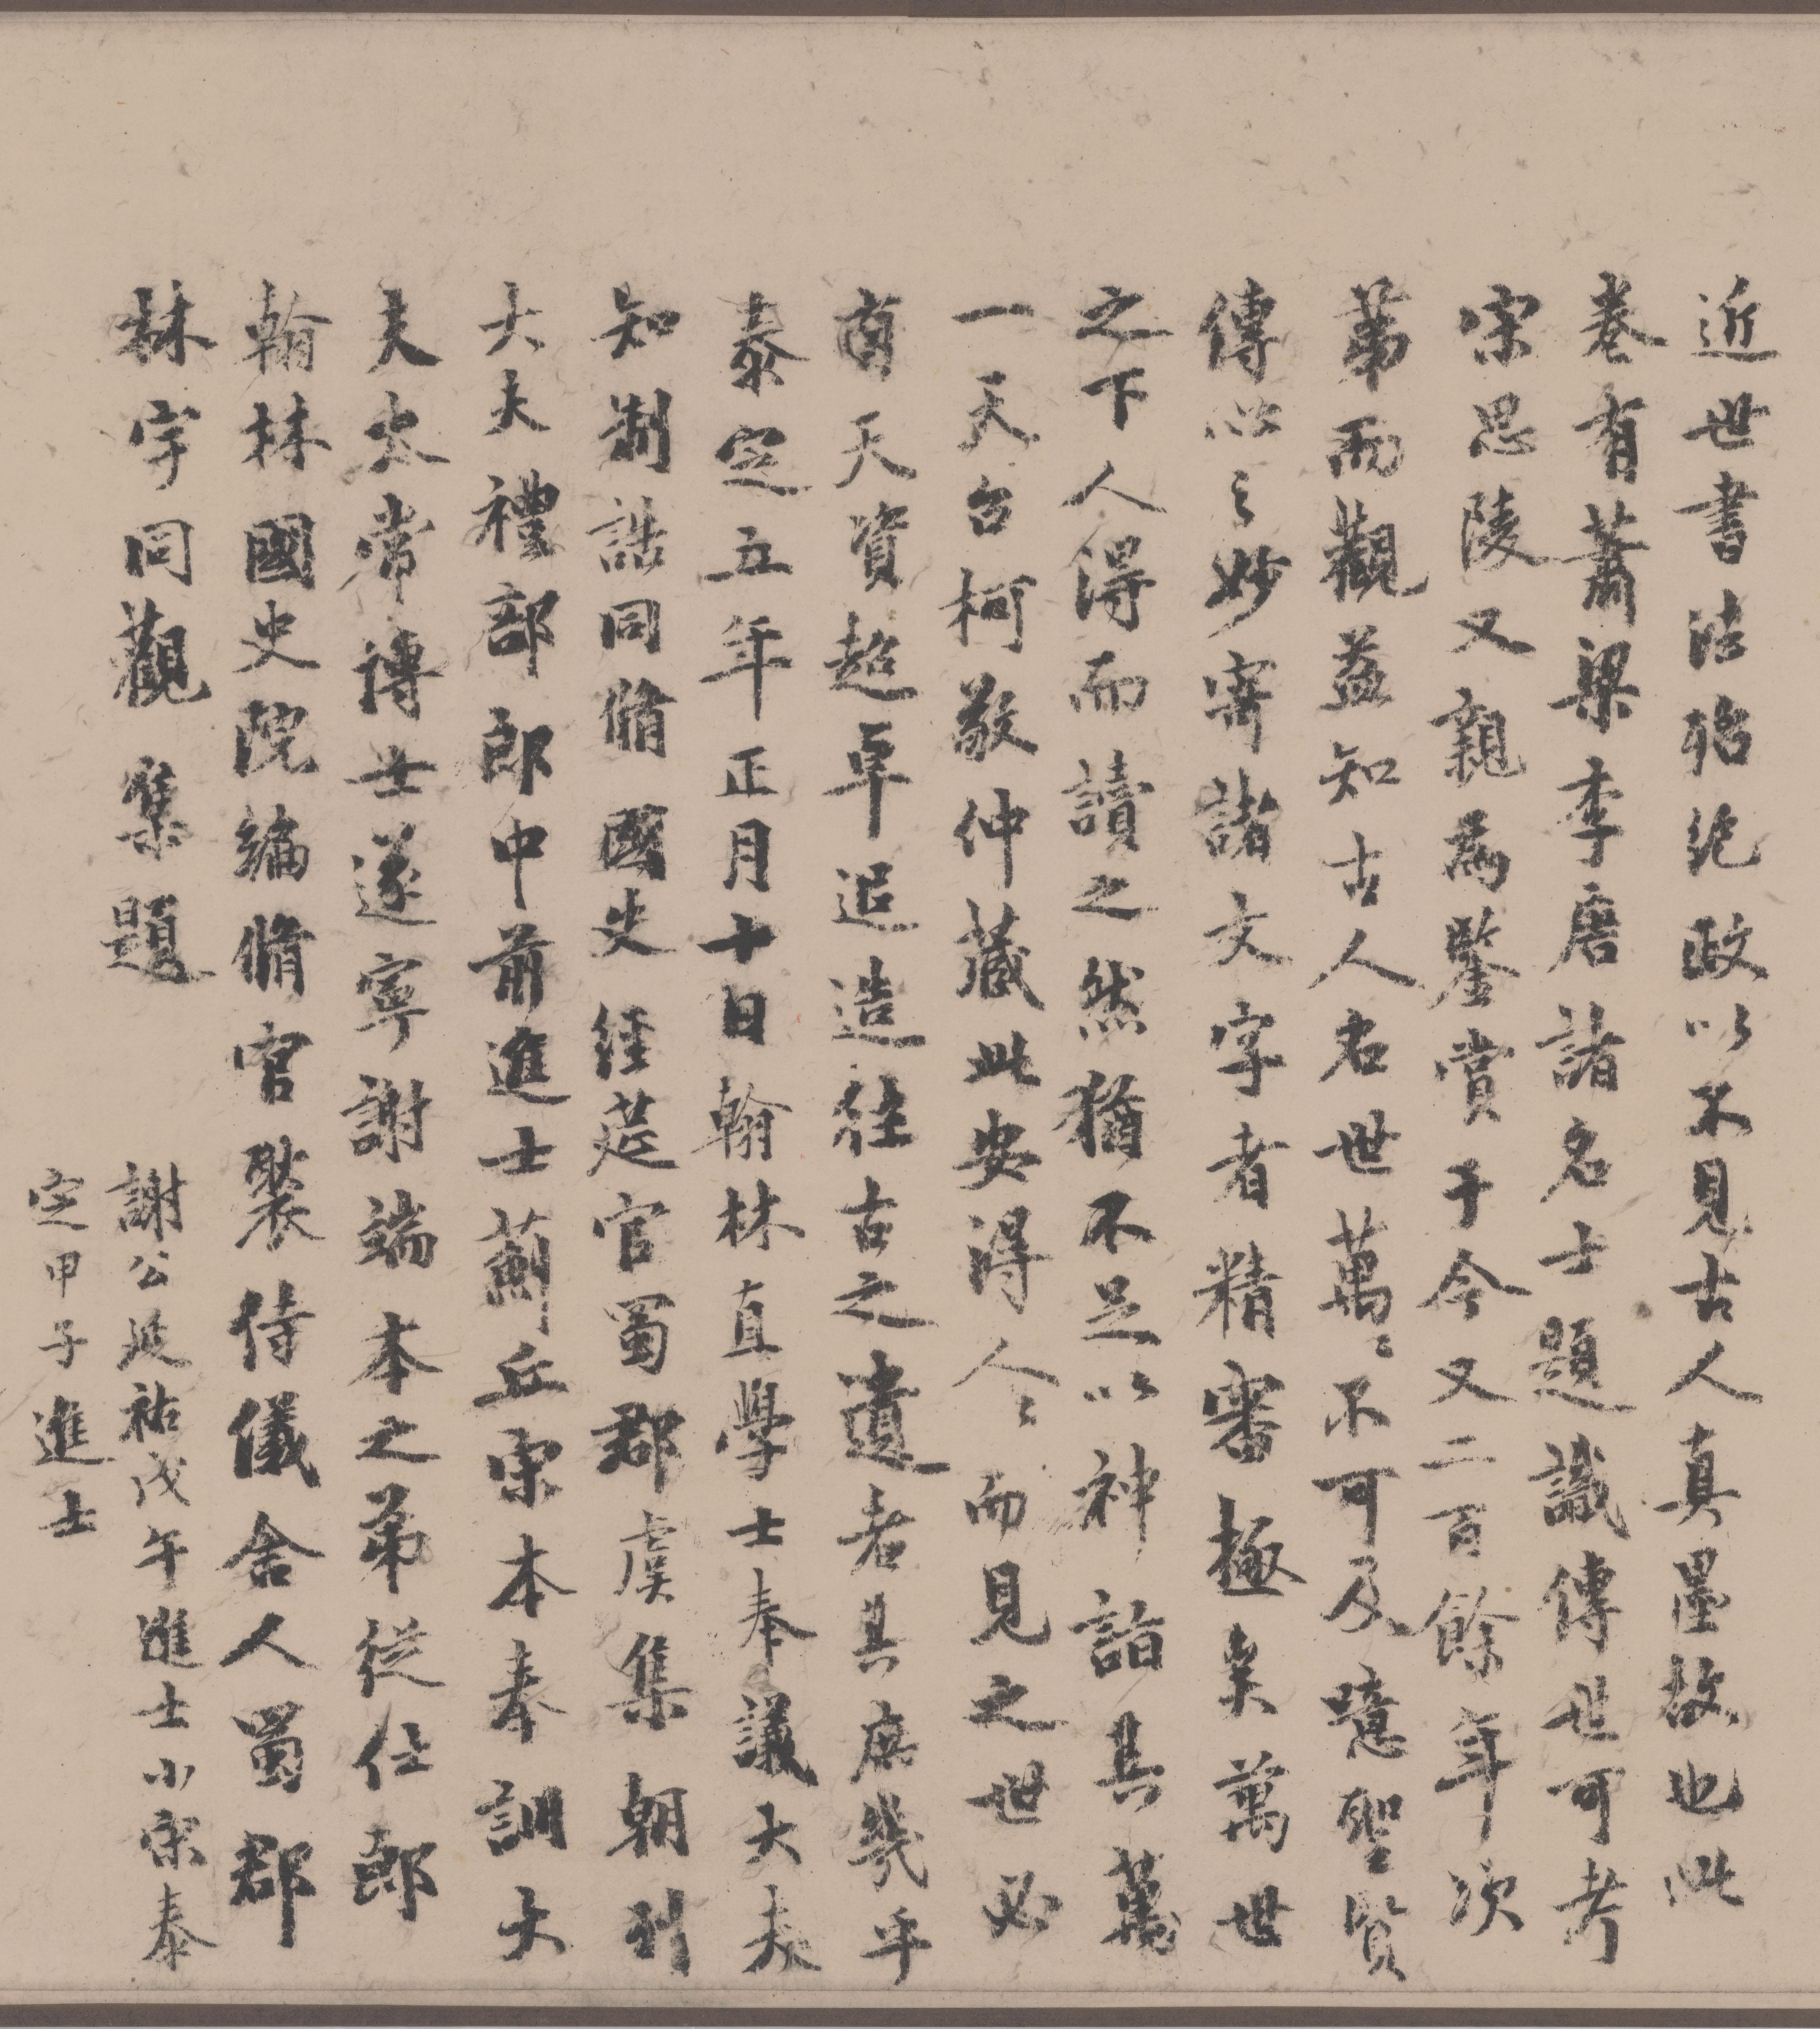 近世書法殆絕政以不見古人真墨故也此
卷有蕭梁李唐諸名士題識傳世可考
宋思陵又親為鑒賞于今又二百餘年次
第而觀益知古人名世萬〻不可及噫聖賢
傳心之妙寄諸文字者精審極矣萬世
之下人得而讀之然猶不足以神詣其萬
一天台柯敬仲藏此安得人〻而見之世必
有天資超卓追造往古之遺者其庶幾乎
泰定五年正月十日翰林直學士奉議大夫
知制誥同脩國史經筵官蜀郡虞集朝列
大夫禮部郎中前進士薊丘宋本奉訓大
夫太常博士遂寧謝端本之弟從仕郎
翰林國史院編脩官褧侍儀舍人蜀郡
林宇同觀 集題
謝公延祐戊午進士小宋泰
定甲子進士